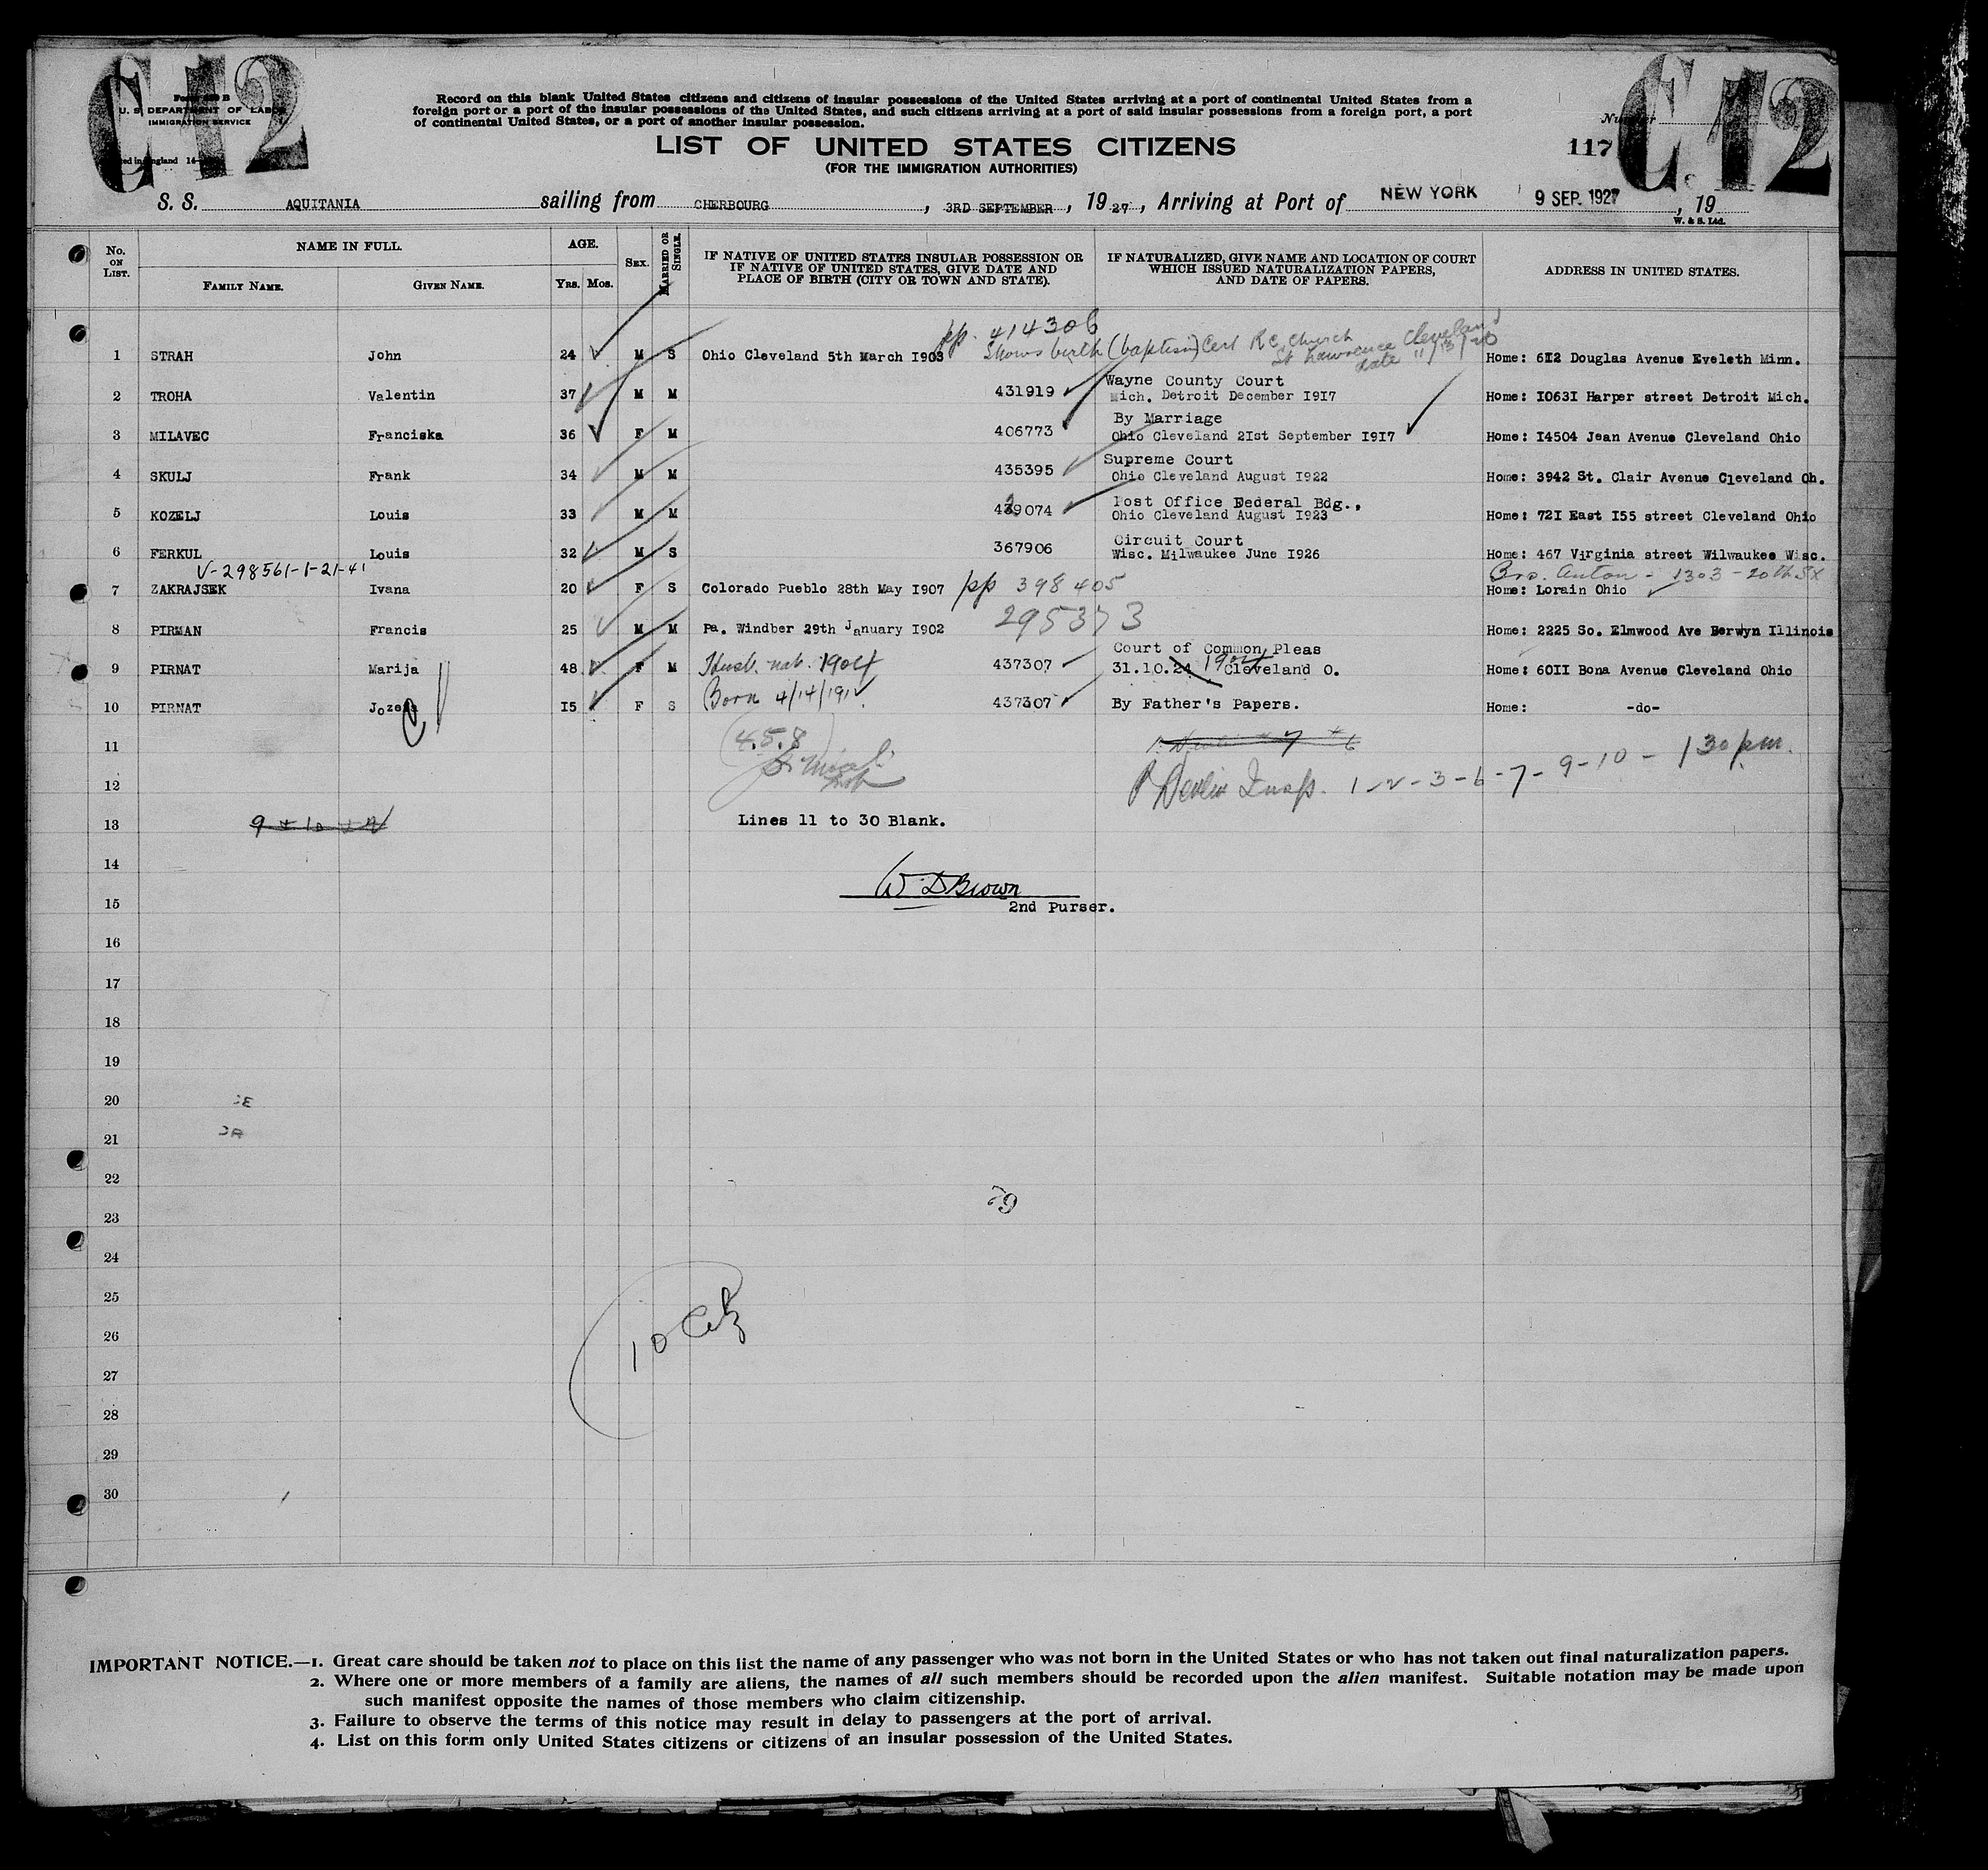 C 12
Form 630 B
U. S. DEPARTMENT OF LABOR
IMMIGRATION SERVICE
Record on this blank United States citizens and citizens of insular possessions of the United States arriving at a port of continental United States from a
foreign port or a port of the insular possessions of the United States, and such citizens arriving at a port of said insular possessions from a foreign port, a port
of continental United States, or a port of another insular possession.
Number
C 12
LIST OF UNITED STATES CITIZENS
117
(FOR THE IMMIGRATION AUTHORITIES)
S. S. AQUITANIA sailing from CHERBOURG, 3RD SEPTEMBER, 1927, Arriving at Port of NEW YORK 9 SEP. 1927, 19
W. & S. Ltd.
No. ON LIST. NAME IN FULL. AGE. SEX. MARRIED OR SINGLE. IF NATIVE OF UNITED STATES INSULAR POSSESSION OR IF NATIVE OF UNITED STATES, GIVE DATE AND PLACE OF BIRTH (CITY OR TOWN AND STATE). IF NATURALIZED, GIVE NAME AND LOCATION OF COURT WHICH ISSUED NATURALIZATION PAPERS, AND DATE OF PAPERS. ADDRESS IN UNITED STATES.
FAMILY NAME. GIVEN NAME. YRS. MOS.
pp. 414306
Shows birth (baptism) Cert R C Church
St Lawrence Cleveland
date 11/13/20
1 STRAH John 24 M S Ohio Cleveland 5th March I903 Home: 6I2 Douglas Avenue Eveleth Minn.
2 TROHA Valentin 37 M M 431919 Wayne County Court
Mich. Detroit December I9I7 Home: I063I Harper street Detroit Mich.
3 MILAVEC Franciska 36 F M 406773 By Marriage
Ohio Cleveland 2Ist September I9I7 Home: I4504 Jean Avenue Cleveland Ohio
4 SKULJ Frank 34 M M 435395 Supreme Court
Ohio Cleveland August I922 Home: 3942 St. Clair Avenue Cleveland Oh.
5 KOZELJ Louis 33 M M 439074 Post Office Federal Bdg.,
Ohio Cleveland August I923 Home: 72I East I55 street Cleveland Ohio
6 FERKUL Louis 32 M S 367906 Circuit Court
Wisc. Milwaukee June I926 Home: 467 Virginia street Wilwaukee Wisc.
V-298561-1-21-41
Bro. Anton - 1303 - 20th St
7 ZAKRAJSEK Ivana 20 F S Colorado Pueblo 28th May I907 pp 398405 Home: Lorain Ohio
8 PIRMAN Francis 25 M M Pa. Windber 29th January I902 295373 Home: 2225 So. Elmwood Ave Berwyn Illinois
9 PIRNAT Marija 48 F M Husb. nat. 1904 437307 Court of Common Pleas
31.10.24 1904 Cleveland O. Home: 60II Bona Avenue Cleveland Ohio
10 PIRNAT Jozefa I5 F S Born 4/14/1912 437307 By Father's Papers. Home: -do-
11 (4.5.8)
12 Devlin Insp. 1-2-3-6-7-9-10 - 130 pm.
13 Lines 11 to 30 Blank.
14
W D Brown
15 2nd Purser.
16
17
18
19
20
21
22
23
24
25
26
27
28
29
30
IMPORTANT NOTICE.—1. Great care should be taken not to place on this list the name of any passenger who was not born in the United States or who has not taken out final naturalization papers.
2. Where one or more members of a family are aliens, the names of all such members should be recorded upon the alien manifest. Suitable notation may be made upon
such manifest opposite the names of those members who claim citizenship.
3. Failure to observe the terms of this notice may result in delay to passengers at the port of arrival.
4. List on this form only United States citizens or citizens of an insular possession of the United States.